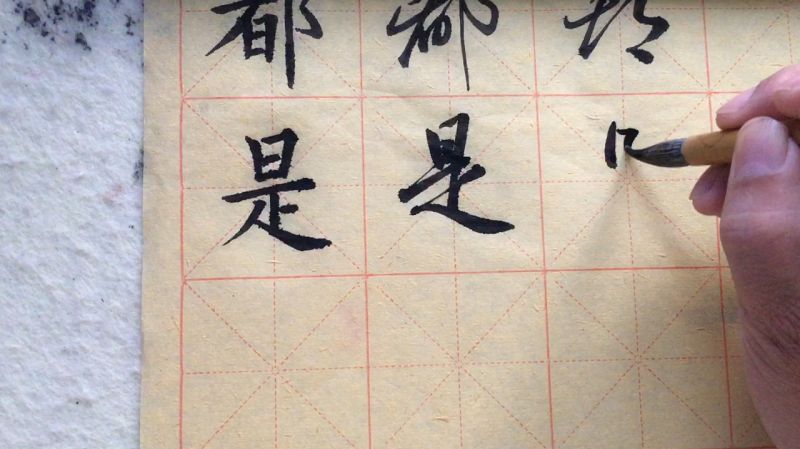 都 都 都
是 是